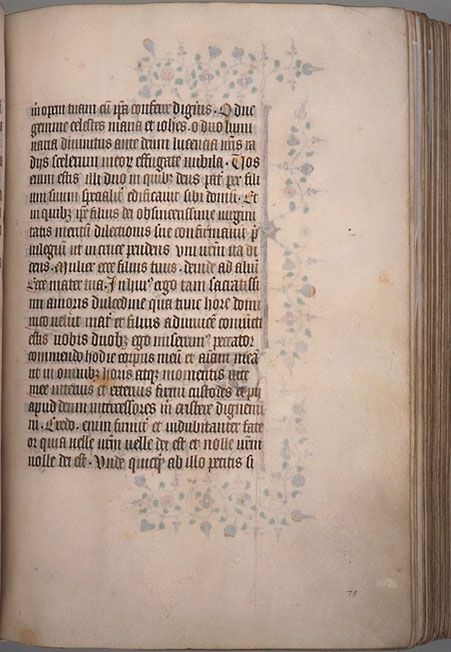 m orem tuam cū ipa conferre digneris. O due
gemme celestes maria et iohes. o duo lumi
naria diuinitus ante deum lucencia ur̄is ra
dijs scelerum meoꝝ effugate nubila. Uos
enim estis illi duo in quibꝫ deus pat̄ per fili
um suum specialit̄ edificauit sibi domū. Et
in quibꝫ ip̄e filius dei obsincerissime uirgini
tatis meritū dilectionis sue confirmauit p̄
uilegiū ut in cruce pendens uni ur̄m ita di
cens. Mulier ecce filius tuus. deinde ad aliū
Ecce mater tua. In huiꝰ ergo tam sacratissi
mi amoris dulcedine qua tunc hore domi
nico uelut mat̄ et filius adinuicem coniūcti
estis uobis duobꝫ ego miserrimꝰ peccatoꝛ
commendo hodie corpus meū et aīam meā
ut in omnibꝫ horis atqꝫ momentis uite
mee interius et exterius firmi custodes et pij
apud deum intercessores m̄ existere dignemi
ni. Credo. enim firmit̄ et indubitanter fate
or quia uelle ur̄m uelle dei est et nolle ur̄m
nolle dei est. Unde quicqͥd ab illo petitis si
79